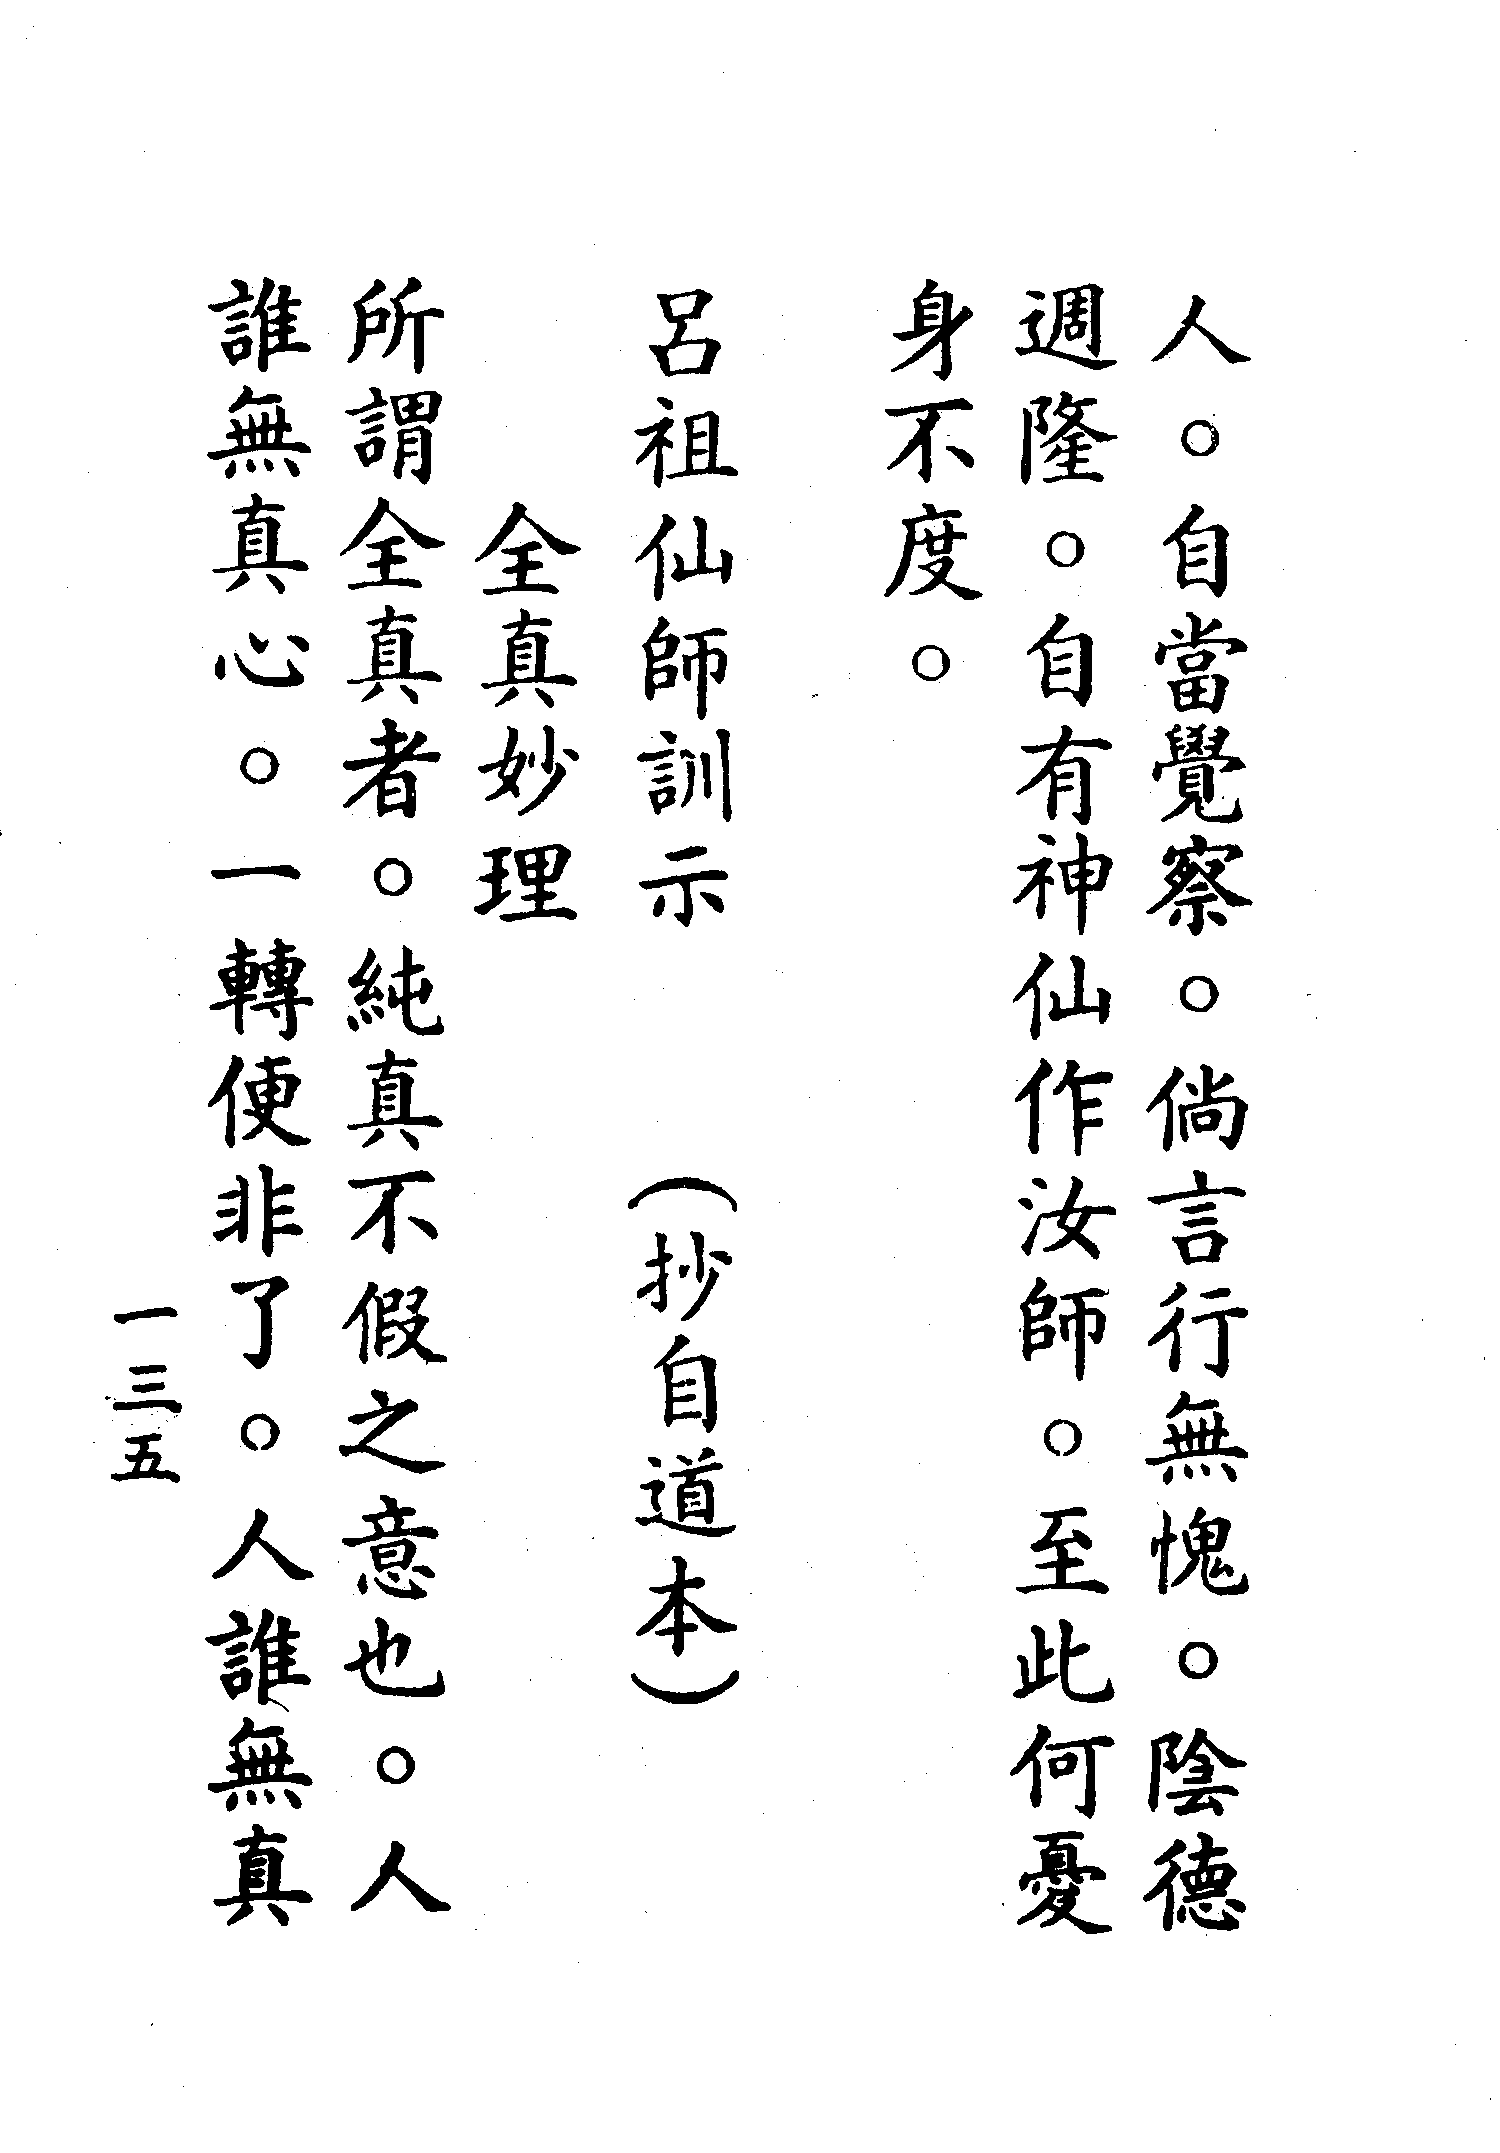 人。自當覺察。倘言行無愧。陰德
週隆。自有神仙作汝師。至此何憂
身不度。
呂祖仙師訓示　（抄自道本）
全真妙理
所謂全真者。純真不假之意也。人
誰無真心。一轉便非了。人誰無真
一三五